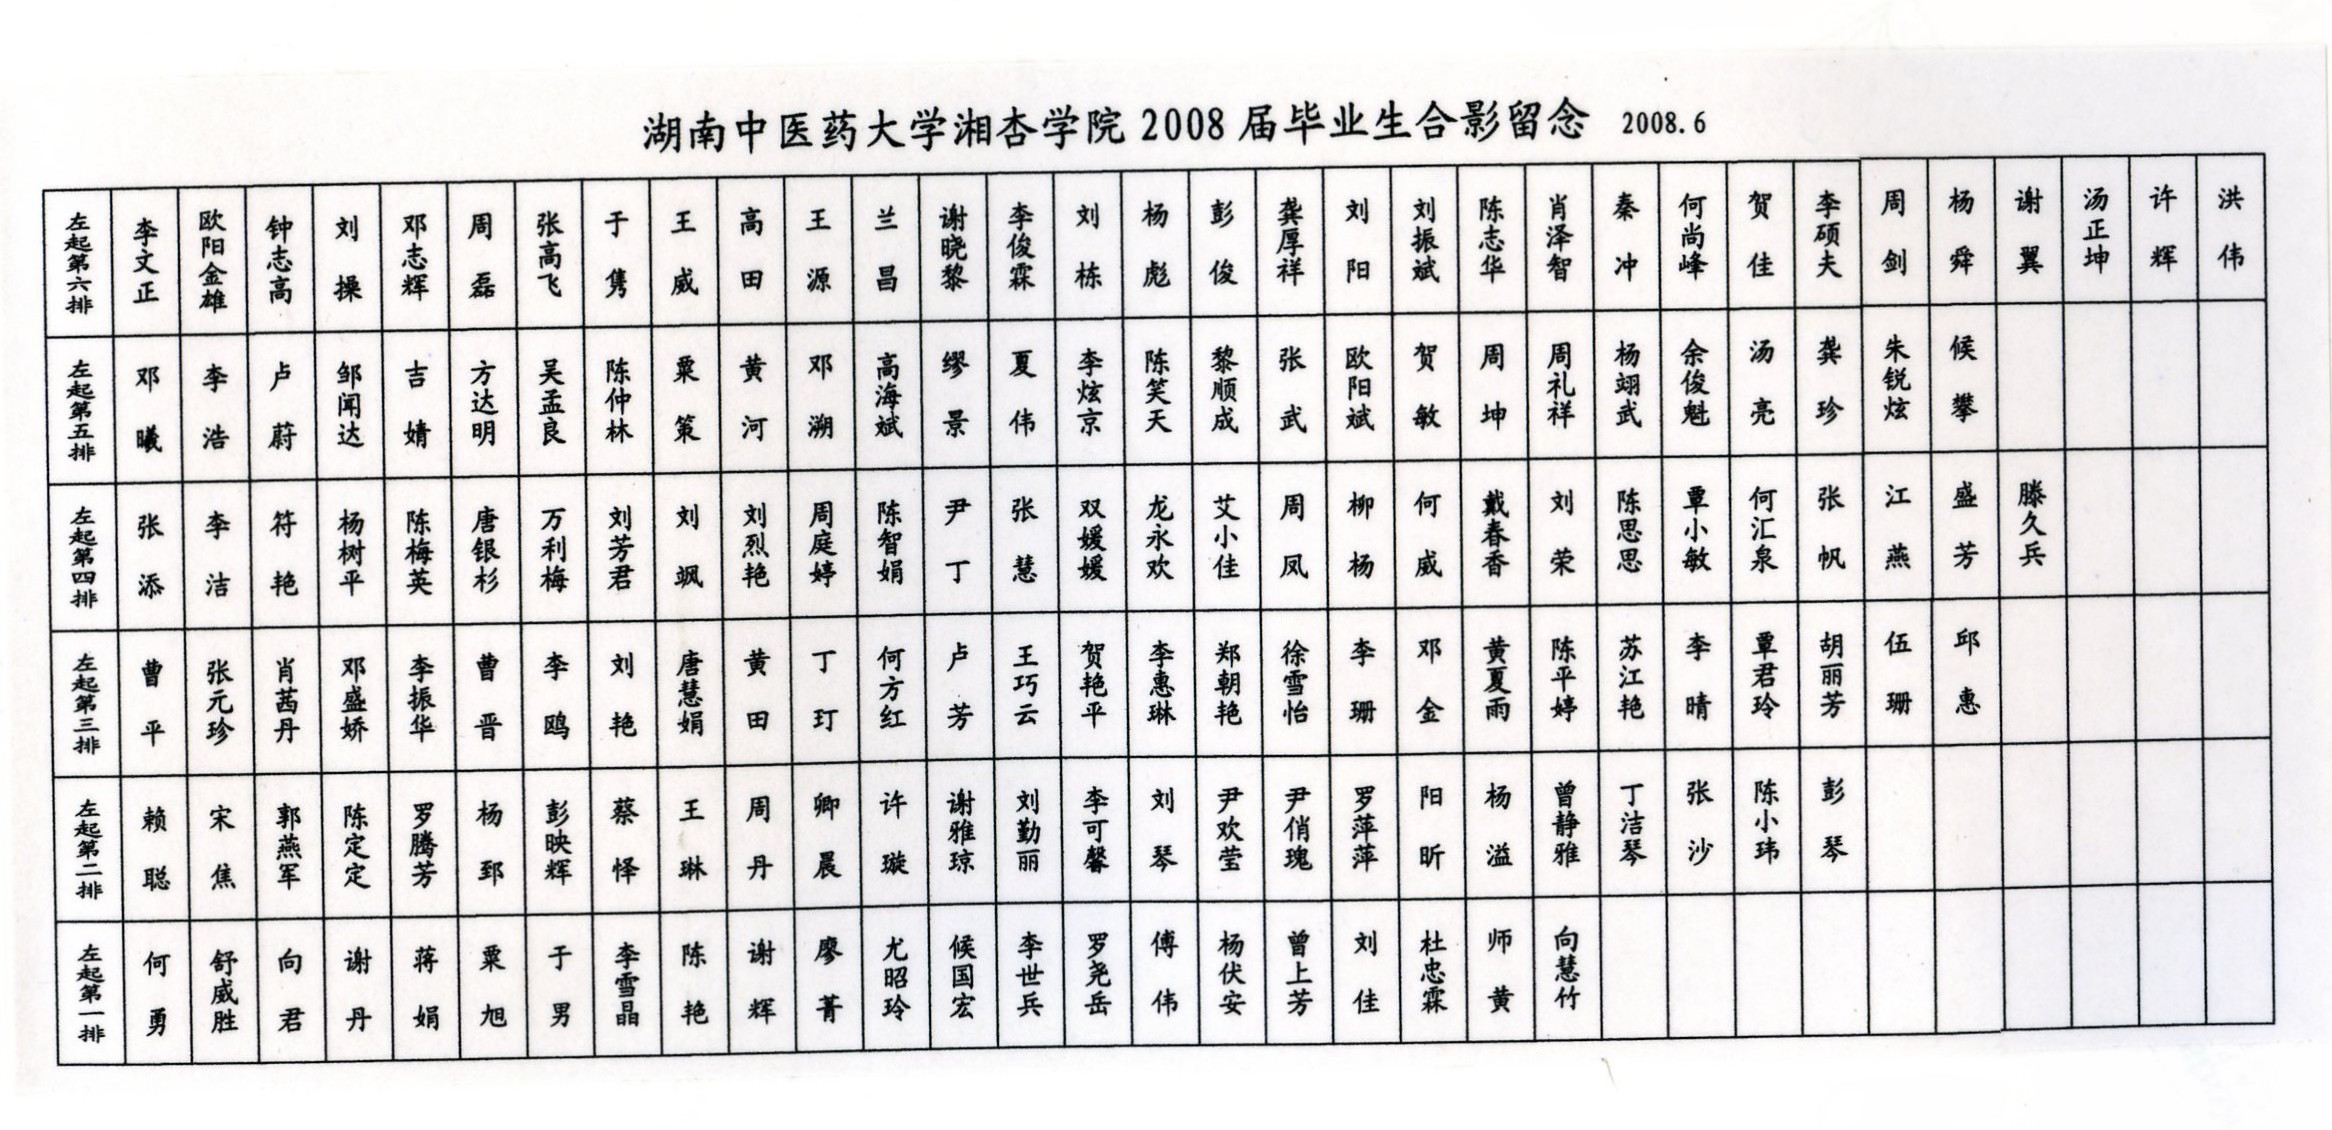 湖南中医药大学湘杏学院2008届毕业生合影留念 2008.6
左起第六排 李文正 欧阳金雄 钟志高 刘操 邓志辉 周磊 张高飞 于隽 王威 高田 王源 兰昌 谢晓黎 李俊霖 刘栋 杨彪 彭俊 龚厚祥 刘阳 刘振斌 陈志华 肖泽智 秦冲 何尚峰 贺佳 李硕夫 周剑 杨舜 谢翼 汤正坤 许辉 洪伟
左起第五排 邓曦 李浩 卢蔚 邹闻达 吉婧 方达明 吴孟良 陈仲林 粟策 黄河 邓溯 高海斌 缪景 夏伟 李炫京 陈笑天 黎顺成 张武 欧阳斌 贺敏 周坤 周礼祥 杨翊武 余俊魁 汤亮 龚珍 朱锐炫 候攀
左起第四排 张添 李洁 符艳 杨树平 陈梅英 唐银杉 万利梅 刘芳君 刘飒 刘烈艳 周庭婷 陈智娟 尹丁 张慧 双媛媛 龙永欢 艾小佳 周凤 柳杨 何威 戴春香 刘荣 陈思思 覃小敏 何汇泉 张帆 江燕 盛芳 滕久兵
左起第三排 曹平 张元珍 肖茜丹 邓盛娇 李振华 曹晋 李鸥 刘艳 唐慧娟 黄田 丁玎 何方红 卢芳 王巧云 贺艳平 李惠琳 郑朝艳 徐雪怡 李珊 邓金 黄夏雨 陈平婷 苏江艳 李晴 覃君玲 胡丽芳 伍珊 邱惠
左起第二排 赖聪 宋焦 郭燕军 陈定定 罗腾芳 杨郅 彭映辉 蔡怿 王琳 周丹 卿晨 许璇 谢雅琼 刘勤丽 李可馨 刘琴 尹欢莹 尹俏瑰 罗萍萍 阳昕 杨溢 曾静雅 丁洁琴 张沙 陈小玮 彭琴
左起第一排 何勇 舒威胜 向君 谢丹 蒋娟 粟旭 于男 李雪晶 陈艳 谢辉 廖菁 尤昭玲 候国宏 李世兵 罗尧岳 傅伟 杨伏安 曾上芳 刘佳 杜忠霖 师黄 向慧竹